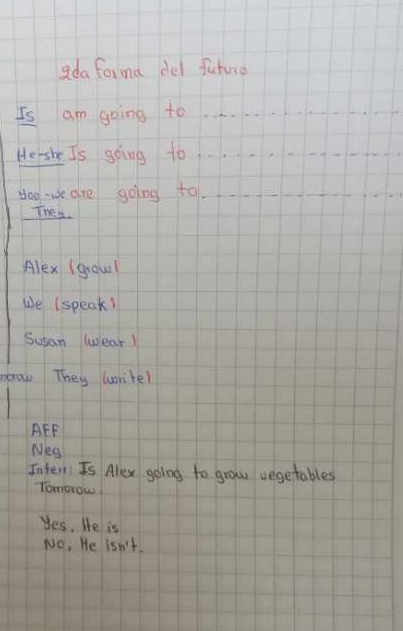 2da forma del futuro
Is am going to ..................
He-she Is going to ..................
You-we are going to ..................
They.
Alex (grow)
We (speak)
Susan (wear)
They (write)
AFF
Neg
Interr: Is Alex going to grow vegetables
Tomorow.
Yes, He is
No, He isn't.